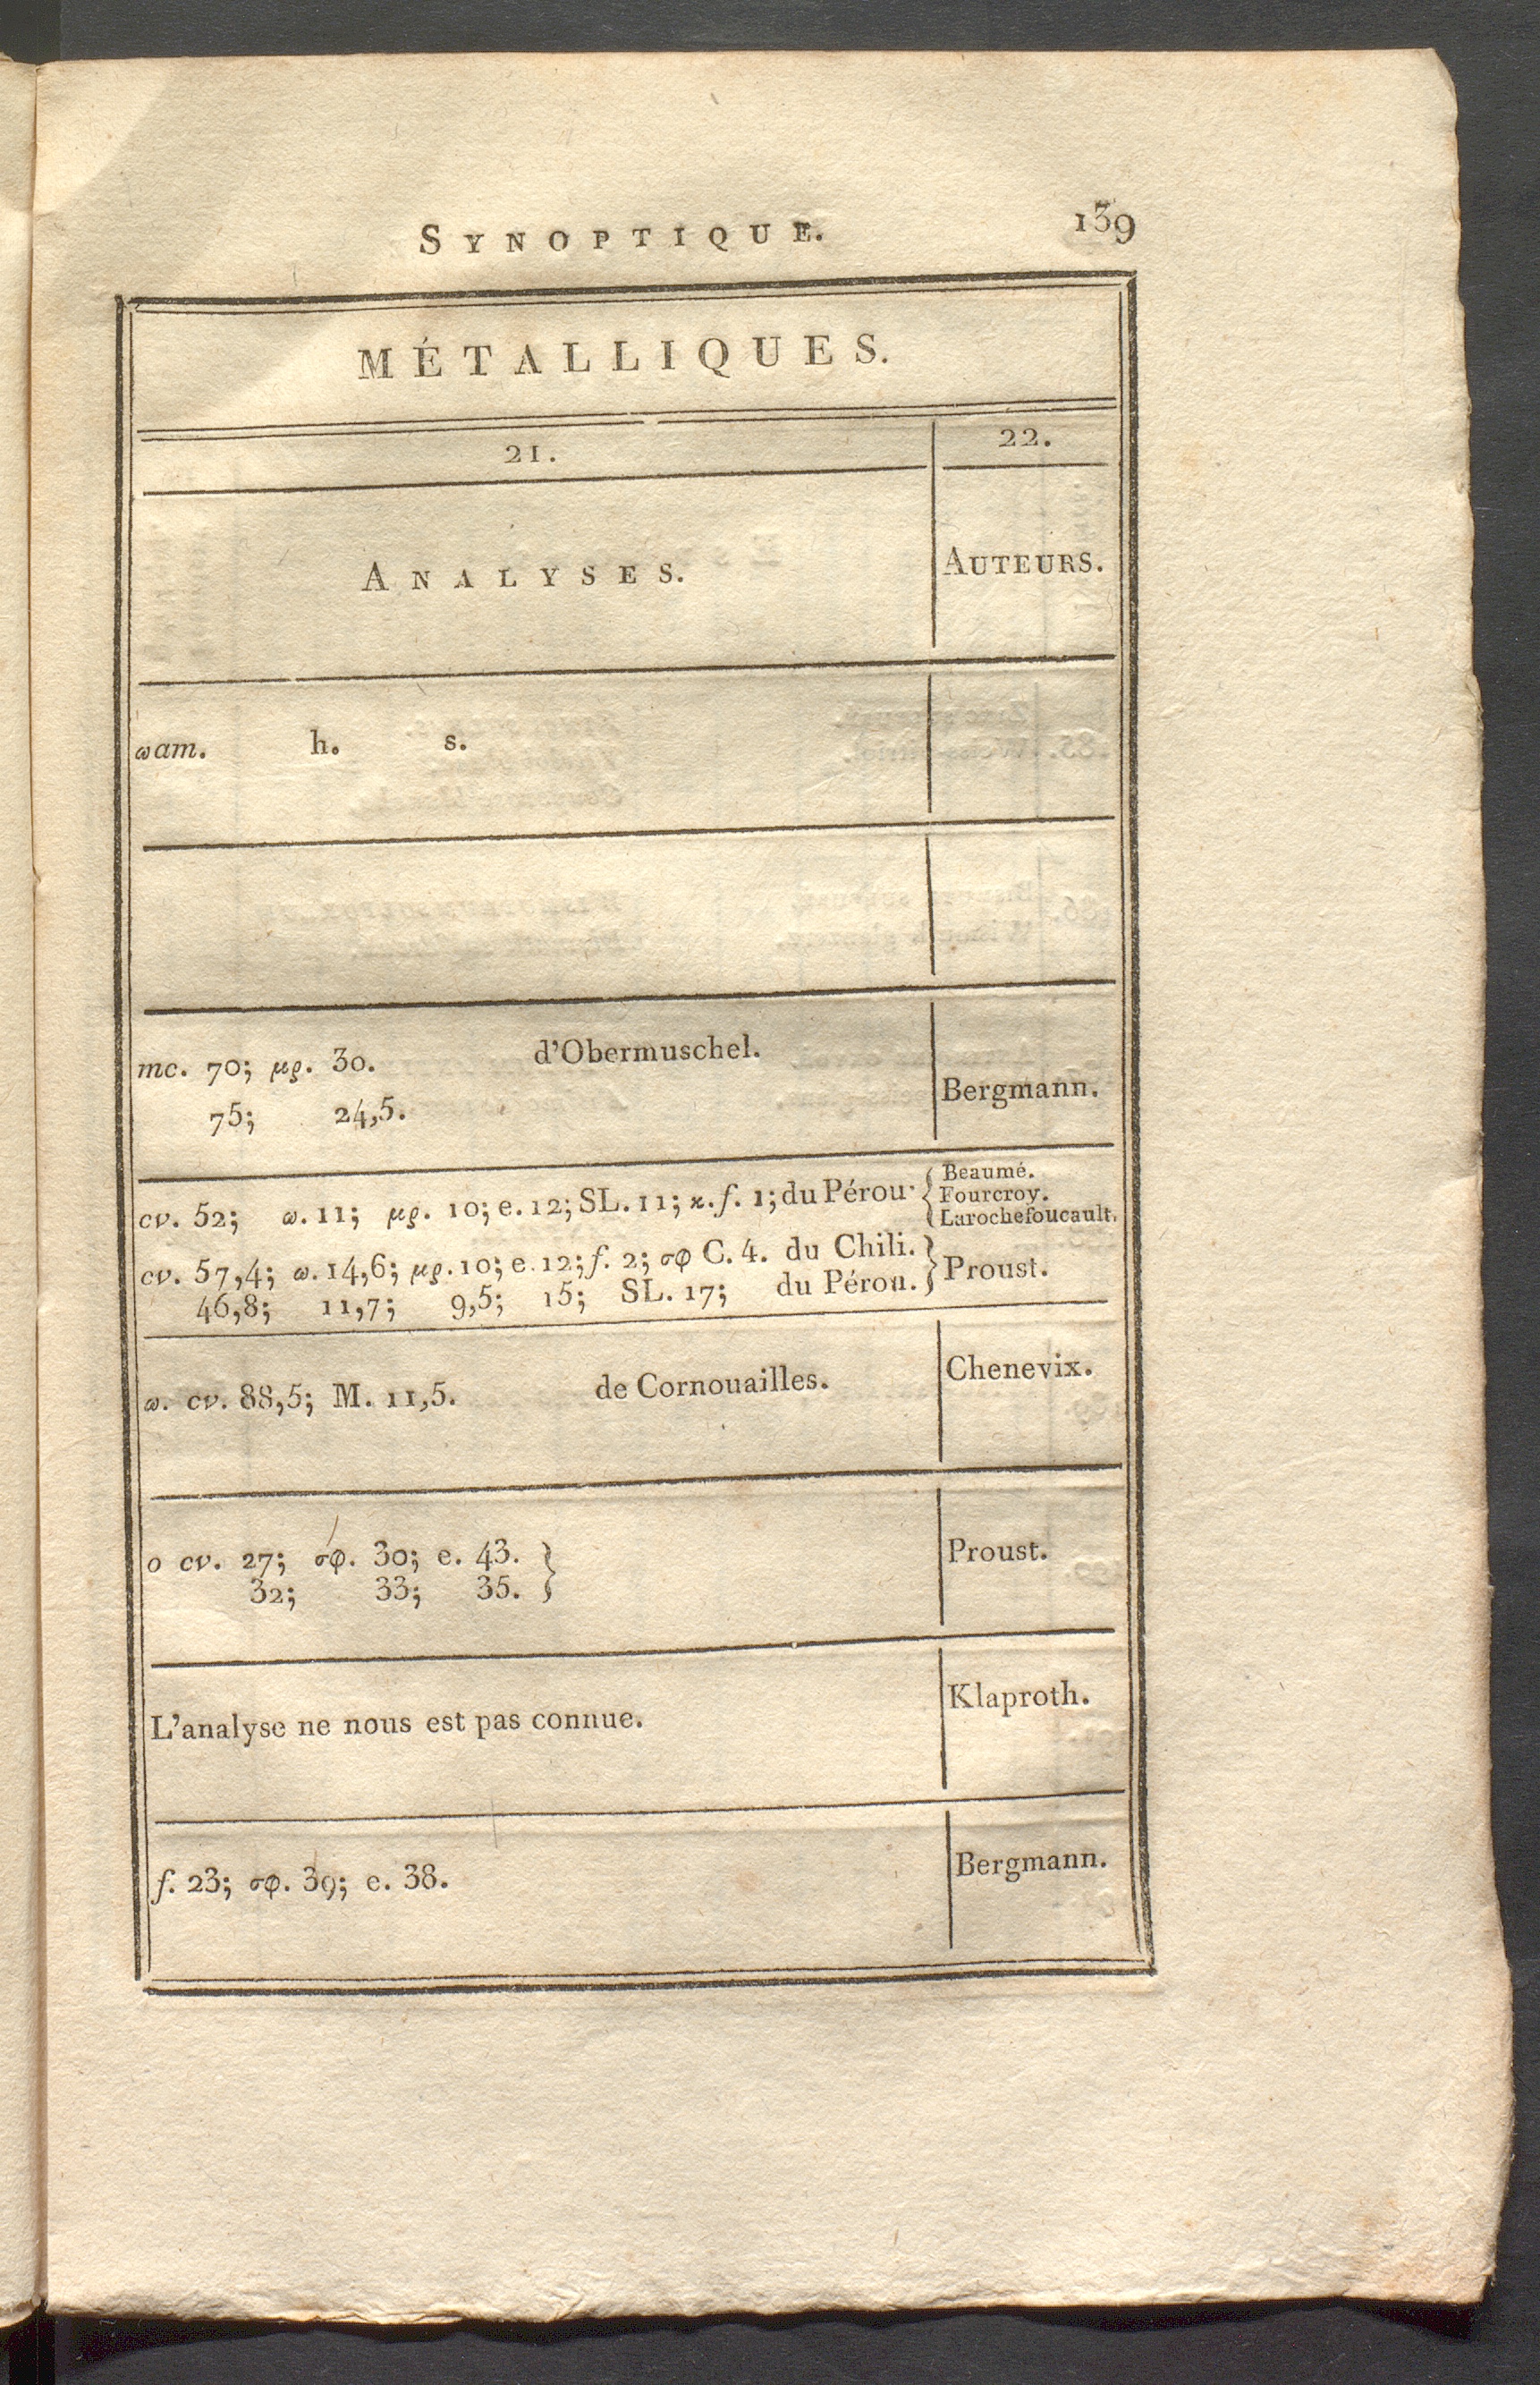 SYNOPTIQUE. 139
MÉTALLIQUES.
21. 22.
ANALYSES. AUTEURS.
ωam. h. s.
mc. 70; μρ. 30. d'Obermuschel.
75; 24,5. Bergmann.
cv. 52; ω. 11; μρ. 10; e. 12; SL. 11; ϰ. f. 1; du Pérou. { Beaumé.
Fourcroy.
Larochefoucault.
cv. 57,4; ω. 14,6; μρ. 10; e. 12; f. 2; σφ C. 4. du Chili. } Proust.
46,8; 11,7; 9,5; 15; SL. 17; du Pérou. }
ω. cv. 88,5; M. 11,5. de Cornouailles. Chenevix.
o cv. 27; σφ. 30; e. 43. } Proust.
32; 33; 35. }
L'analyse ne nous est pas connue. Klaproth.
f. 23; σφ. 39; e. 38. Bergmann.